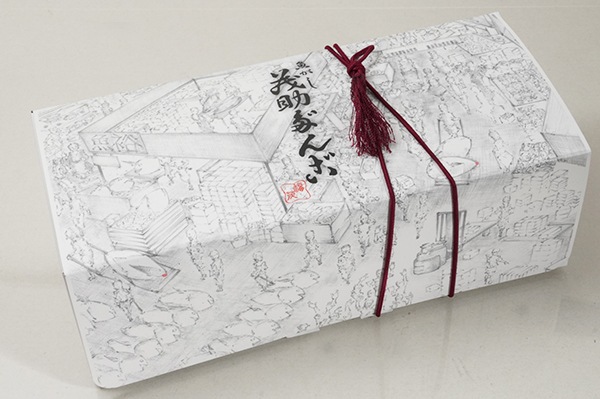 魚がし
茂助だんご